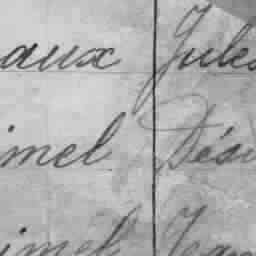 aux Jules
imel Dési
imel Jean